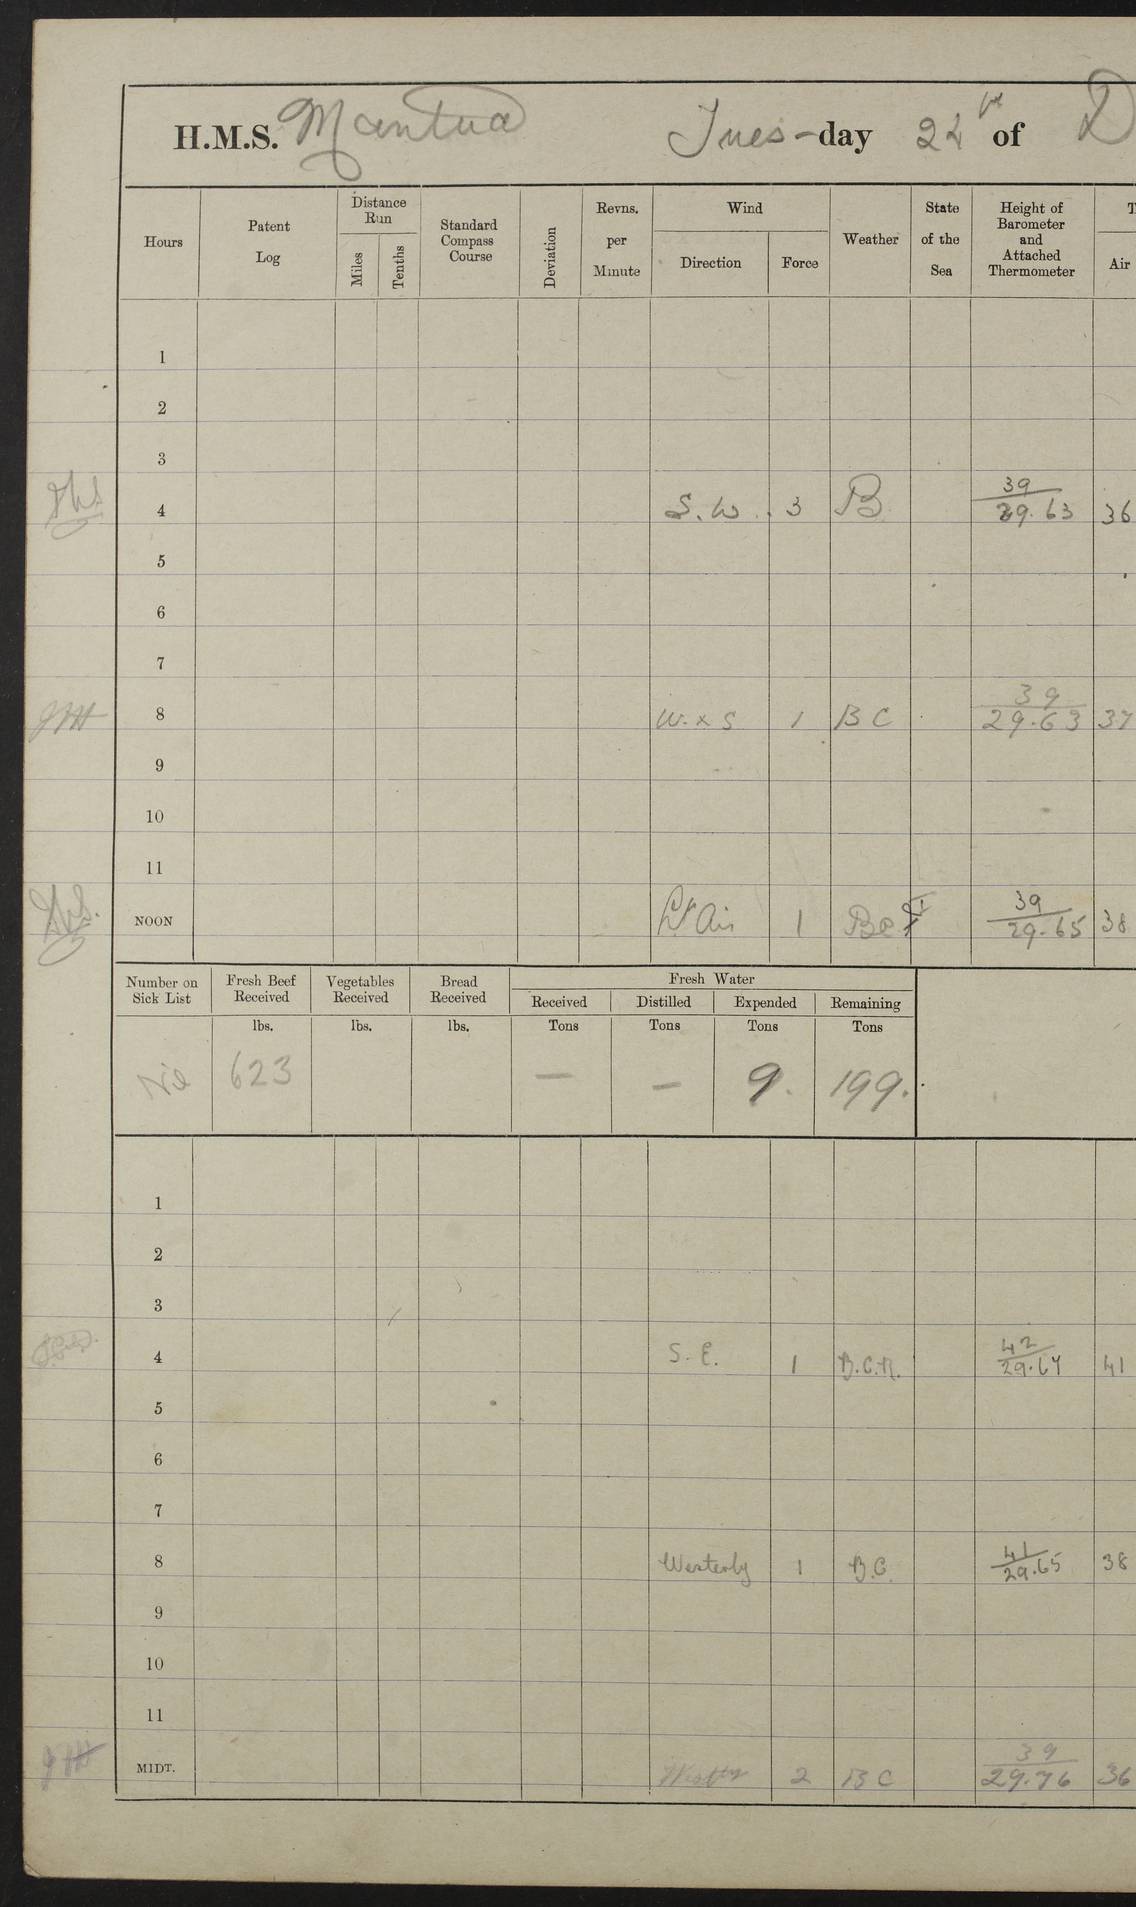 H.M.S. Mantua Tues-day 22 of D
Hours Patent Log Distance Run Miles Tenths Standard Compass Course Deviation Revns. per Minute Wind Direction Force Weather State of the Sea Height of Barometer and Attached Thermometer T Air
1
2
3
4 S.W. 3 B 39 29.63 36
5
6
7
8 W. x S 1 BC 39 29.63 37
9
10
11
NOON Lt Air 1 39 29.65 38
Number on Sick List Fresh Beef Received Vegetables Received Bread Received Fresh Water
Received Distilled Expended Remaining
lbs. lbs. lbs. Tons Tons Tons Tons
Nil 623 — — 9. 199.
1
2
3
4 S. E. 1 B.C.R. 42 29.64 41
5
6
7
8 Westerly 1 B.C. 41 29.65 38
9
10
11
MIDT. 2 BC 39 29.76 36